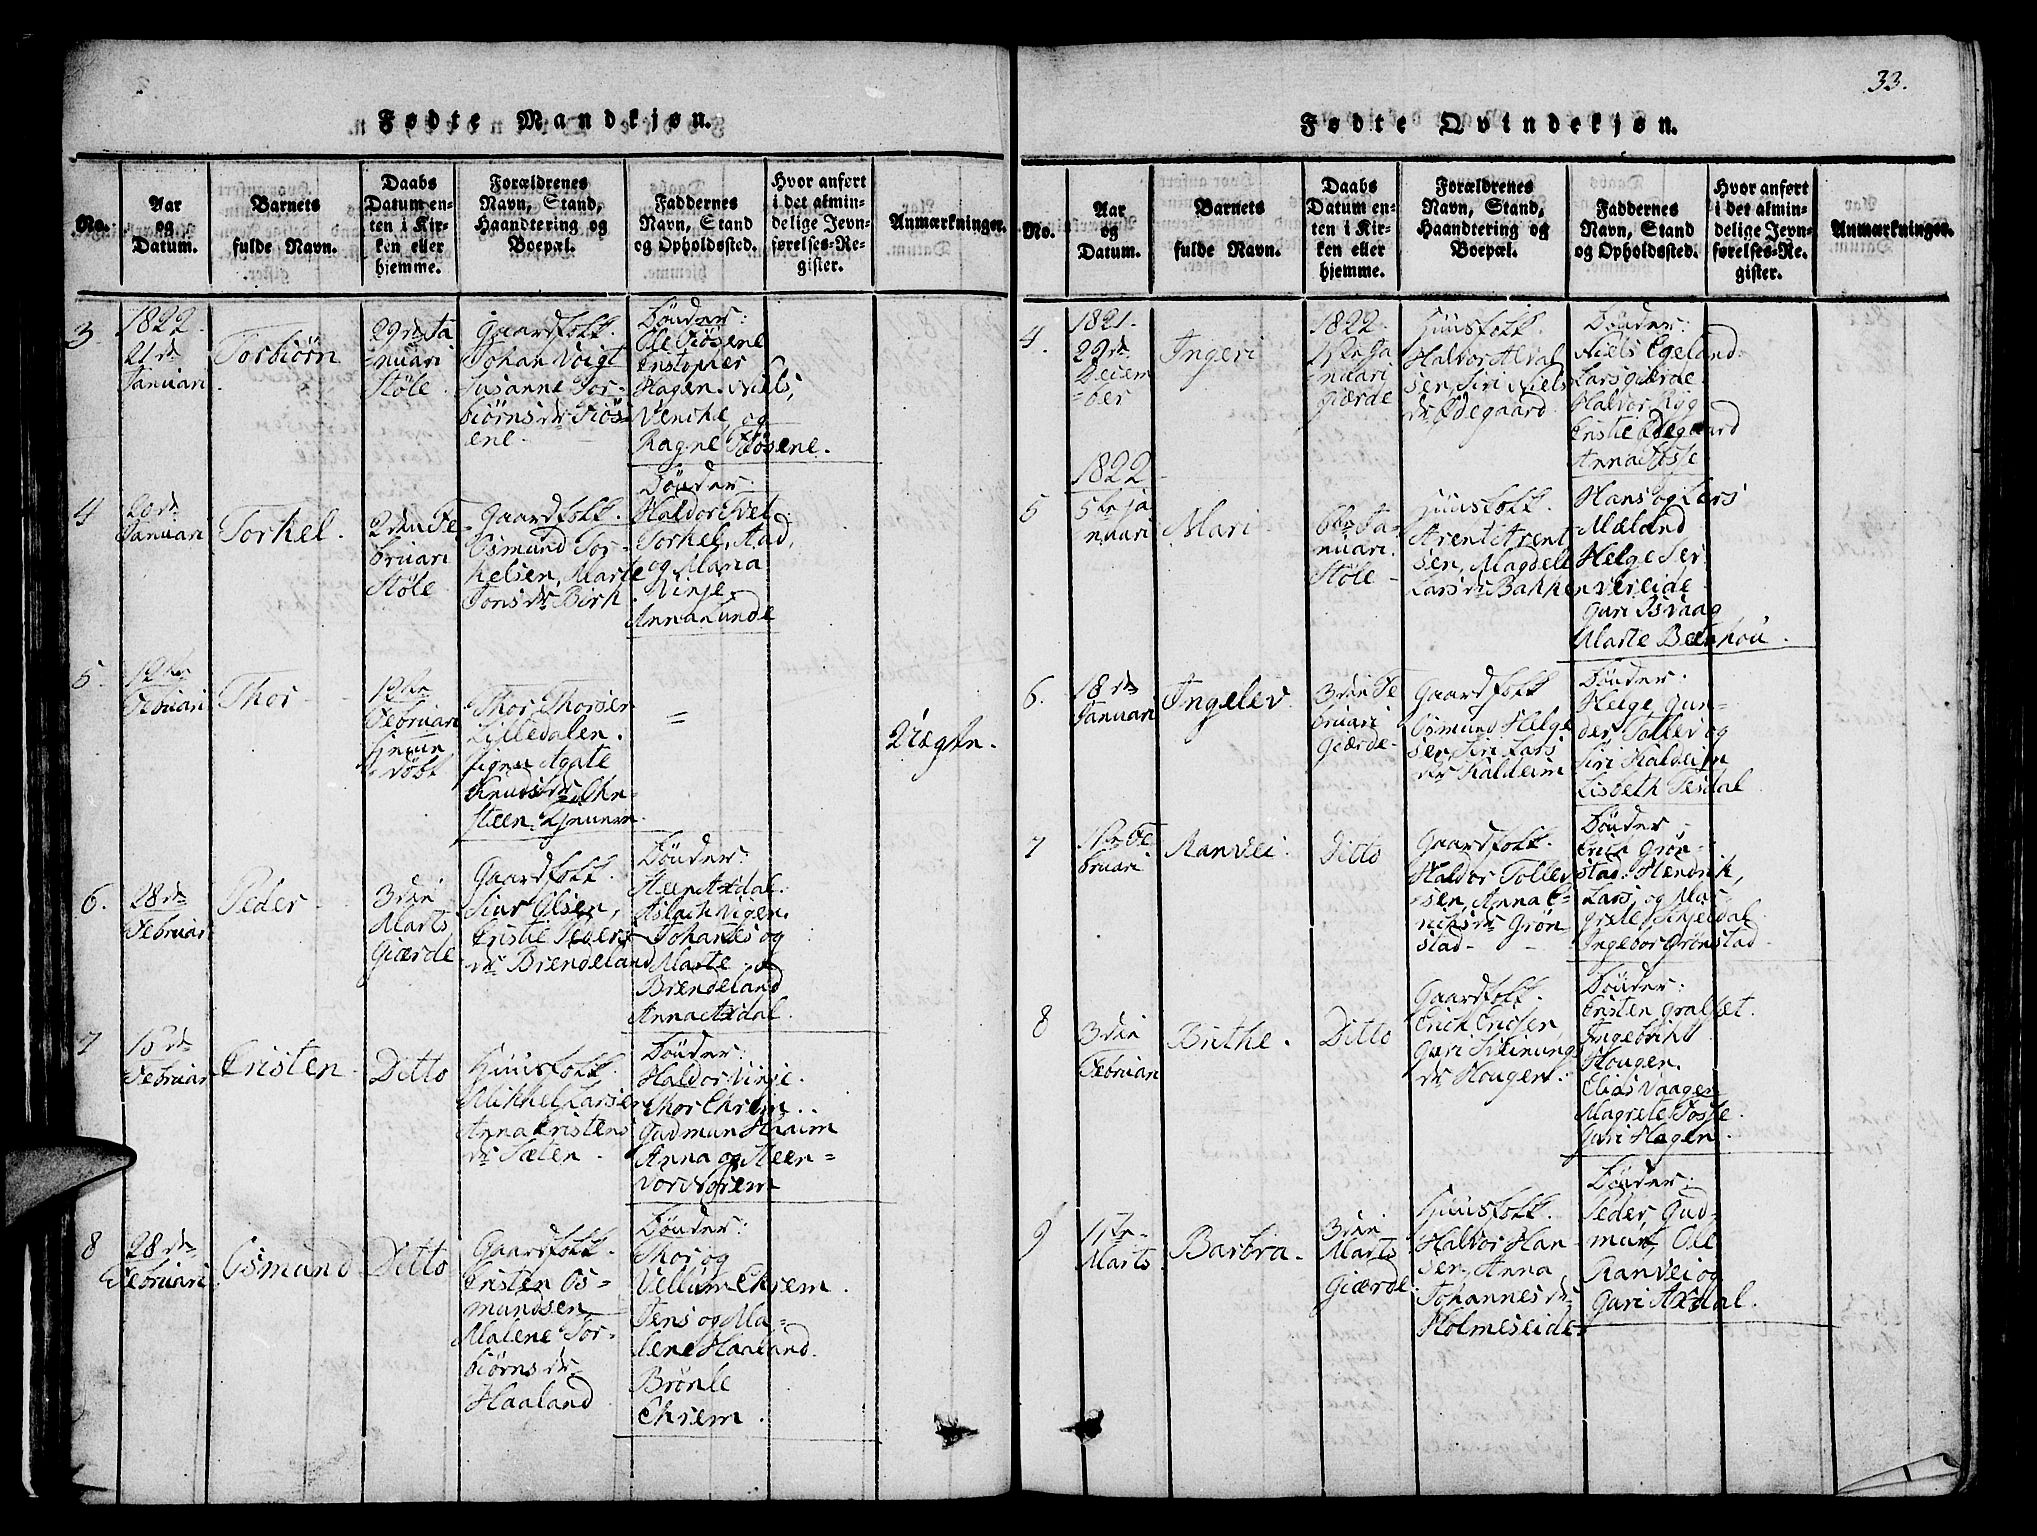 33.
Fødte Mandkjøn.
No.
Aar
og
Datum.
Barnets
fulde Navn.
Daabs
Datum en-
ten i Kir-
ken eller
hjemme.
Forældrenes
Navn, Stand,
Haandtering og
Boepæl.
Faddernes
Navn, Stand
og Opholdssted.
Hvor anført
i det almin-
delige Jevn-
førelses-Re-
gister.
Anmærkninger.
3
1822.
21de
Januari
Torbiörn
29de Ja
nuari
Stöle
Gaardfolk.
Johan Voigt
Susanne Tor-
biörns dr Fiös-
ene.
Bönder:
Ole Fiösene
Cristopher
Hagen. Niels,
Venche og
Ragne Fiösene.
4
20de
Januari
Torkel.
2den Fe
bruari
Stöle
Gaardfolk.
Osmund Tor-
kelsen, Marte
Jons dr Birk.
Bönder:
Haldor Tvet
Torkel Aad,
og Maria
Vinje.
Anna Lunde
5.
12te
Februari
Thor
12te
Februari
hjem
döbt
Thor Thorsen
Lilledalen.
Agate
Knuds dr
steen.
=
6.
28de
Februari
Peder
3die
Marts
Giærde
Gaardfolk.
Siur Olsen,
Cristie Peders
dr Brendeland
Bönder:
Steen Axdal.
Aslach Vigen.
Johannes og
Marte
Brendeland
Anna Axdal.
7
Februari
Cristen
Ditto
Huusfolk.
Mikkel Larsen
Anna Cristens
dr Sæten.
Bönder:
Haldor Vinje.
Thor Ehrem.
Gudmun Haaim
Anna og Steen-
vor Norem
8
28de
Februari
Osmund
Ditto
Gaardfolk.
Cristen Os-
mundsen
Malene Tor-
biörns dr
Haaland
Bönder:
Thor og
Vellum Ehrem.
Jens og Ma-
lene Haaland.
Brönle
Ehrem.
Fødte Qvindekjøn.
No.
Aar
og
Datum.
Barnets
fulde Navn.
Daabs
Datum en-
ten i Kir-
ken eller
hjemme.
Forældrenes
Navn, Stand,
Haandtering og
Boepæl.
Faddernes
Navn, Stand
og Opholdssted.
Hvor anført
i det almin-
delige Jevn-
førelses-Re-
gister.
Anmærkninger.
4.
1821.
29de
Decem
=ber
Ingeri
1822.
Ja
nuari
Giærde
Huusfolk.
Halvor Alval
sen, Siri Niels
dr Ödegaard.
Bönder:
Niels Egeland.
Lars giærde.
Halvor Ryg
Cristie Ödegaard
Anna Fosse
5
1822
5te Ja
nuari
Mari
6te Ja-
nuari.
Stöle
Huusfolk.
Arent Arent
sen, Magdele
Lars dr Bakken
Hans og Lars
Mæland
Helge Ser
vereide
Guri Isvaag
Marte Bænhou.
6.
18de
Januari
Ingelev
3die Fe
bruari
Giærde
Gaardfolk
Osmund Helge
sen, Siri Lars
dr Kaldeim
Bönder:
Helge, Gun-
der, Tollev og
Siri Kaldeim
Lisbeth Tesdal
7
11te Fe
bruari
Ranvei
Ditto
Gaardfolk.
Haldor Tollev
sen, Anna E-
richs dr Grön
stad
Bönder
Erich Grön-
stad. Hendrik,
Lars, og Mar-
grete Sinjeldal
Ingebor Grönstad
8
3die
Februari
Brithe.
Ditto
Gaardfolk.
Erich Ericsen,
Guri
dr Hougen.
Bönder:
Cristen Gralset.
Ingebricht
Hougen.
Elias Vaagen
Magrete Fosse.
Guri Hagen.
9
17te
Marts.
Barbra.
3die
Marts
Giærde
Huusfolk.
Halvor Han
sen, Anna
Johannes dr
Holmeseide
Bönder:
Peder, Gud-
mun, Ole
Ranvei og
Guri Axdal.